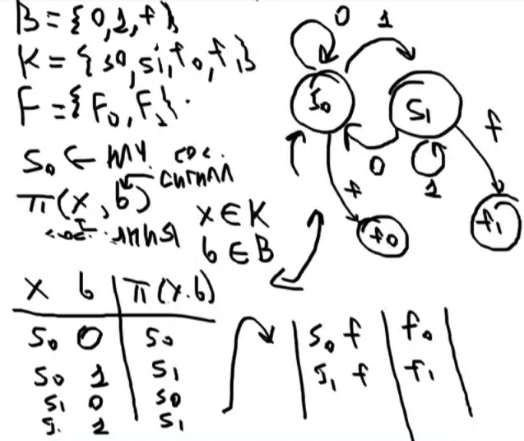 B = {0,1,f}
K = {s0,s1,f0,f1}
F = {F0,F1}.
S0 ←
сигнал
π(x,b)
x ∈ K
b ∈ B
x b | π(x.b)
S0 0 | S0
S0 1 | S1
S1 0 | S0
S. 1 | S1
S0 f | f0
S1 f | f1
0 1
S0 S1
f
0
1
f
f0 f1